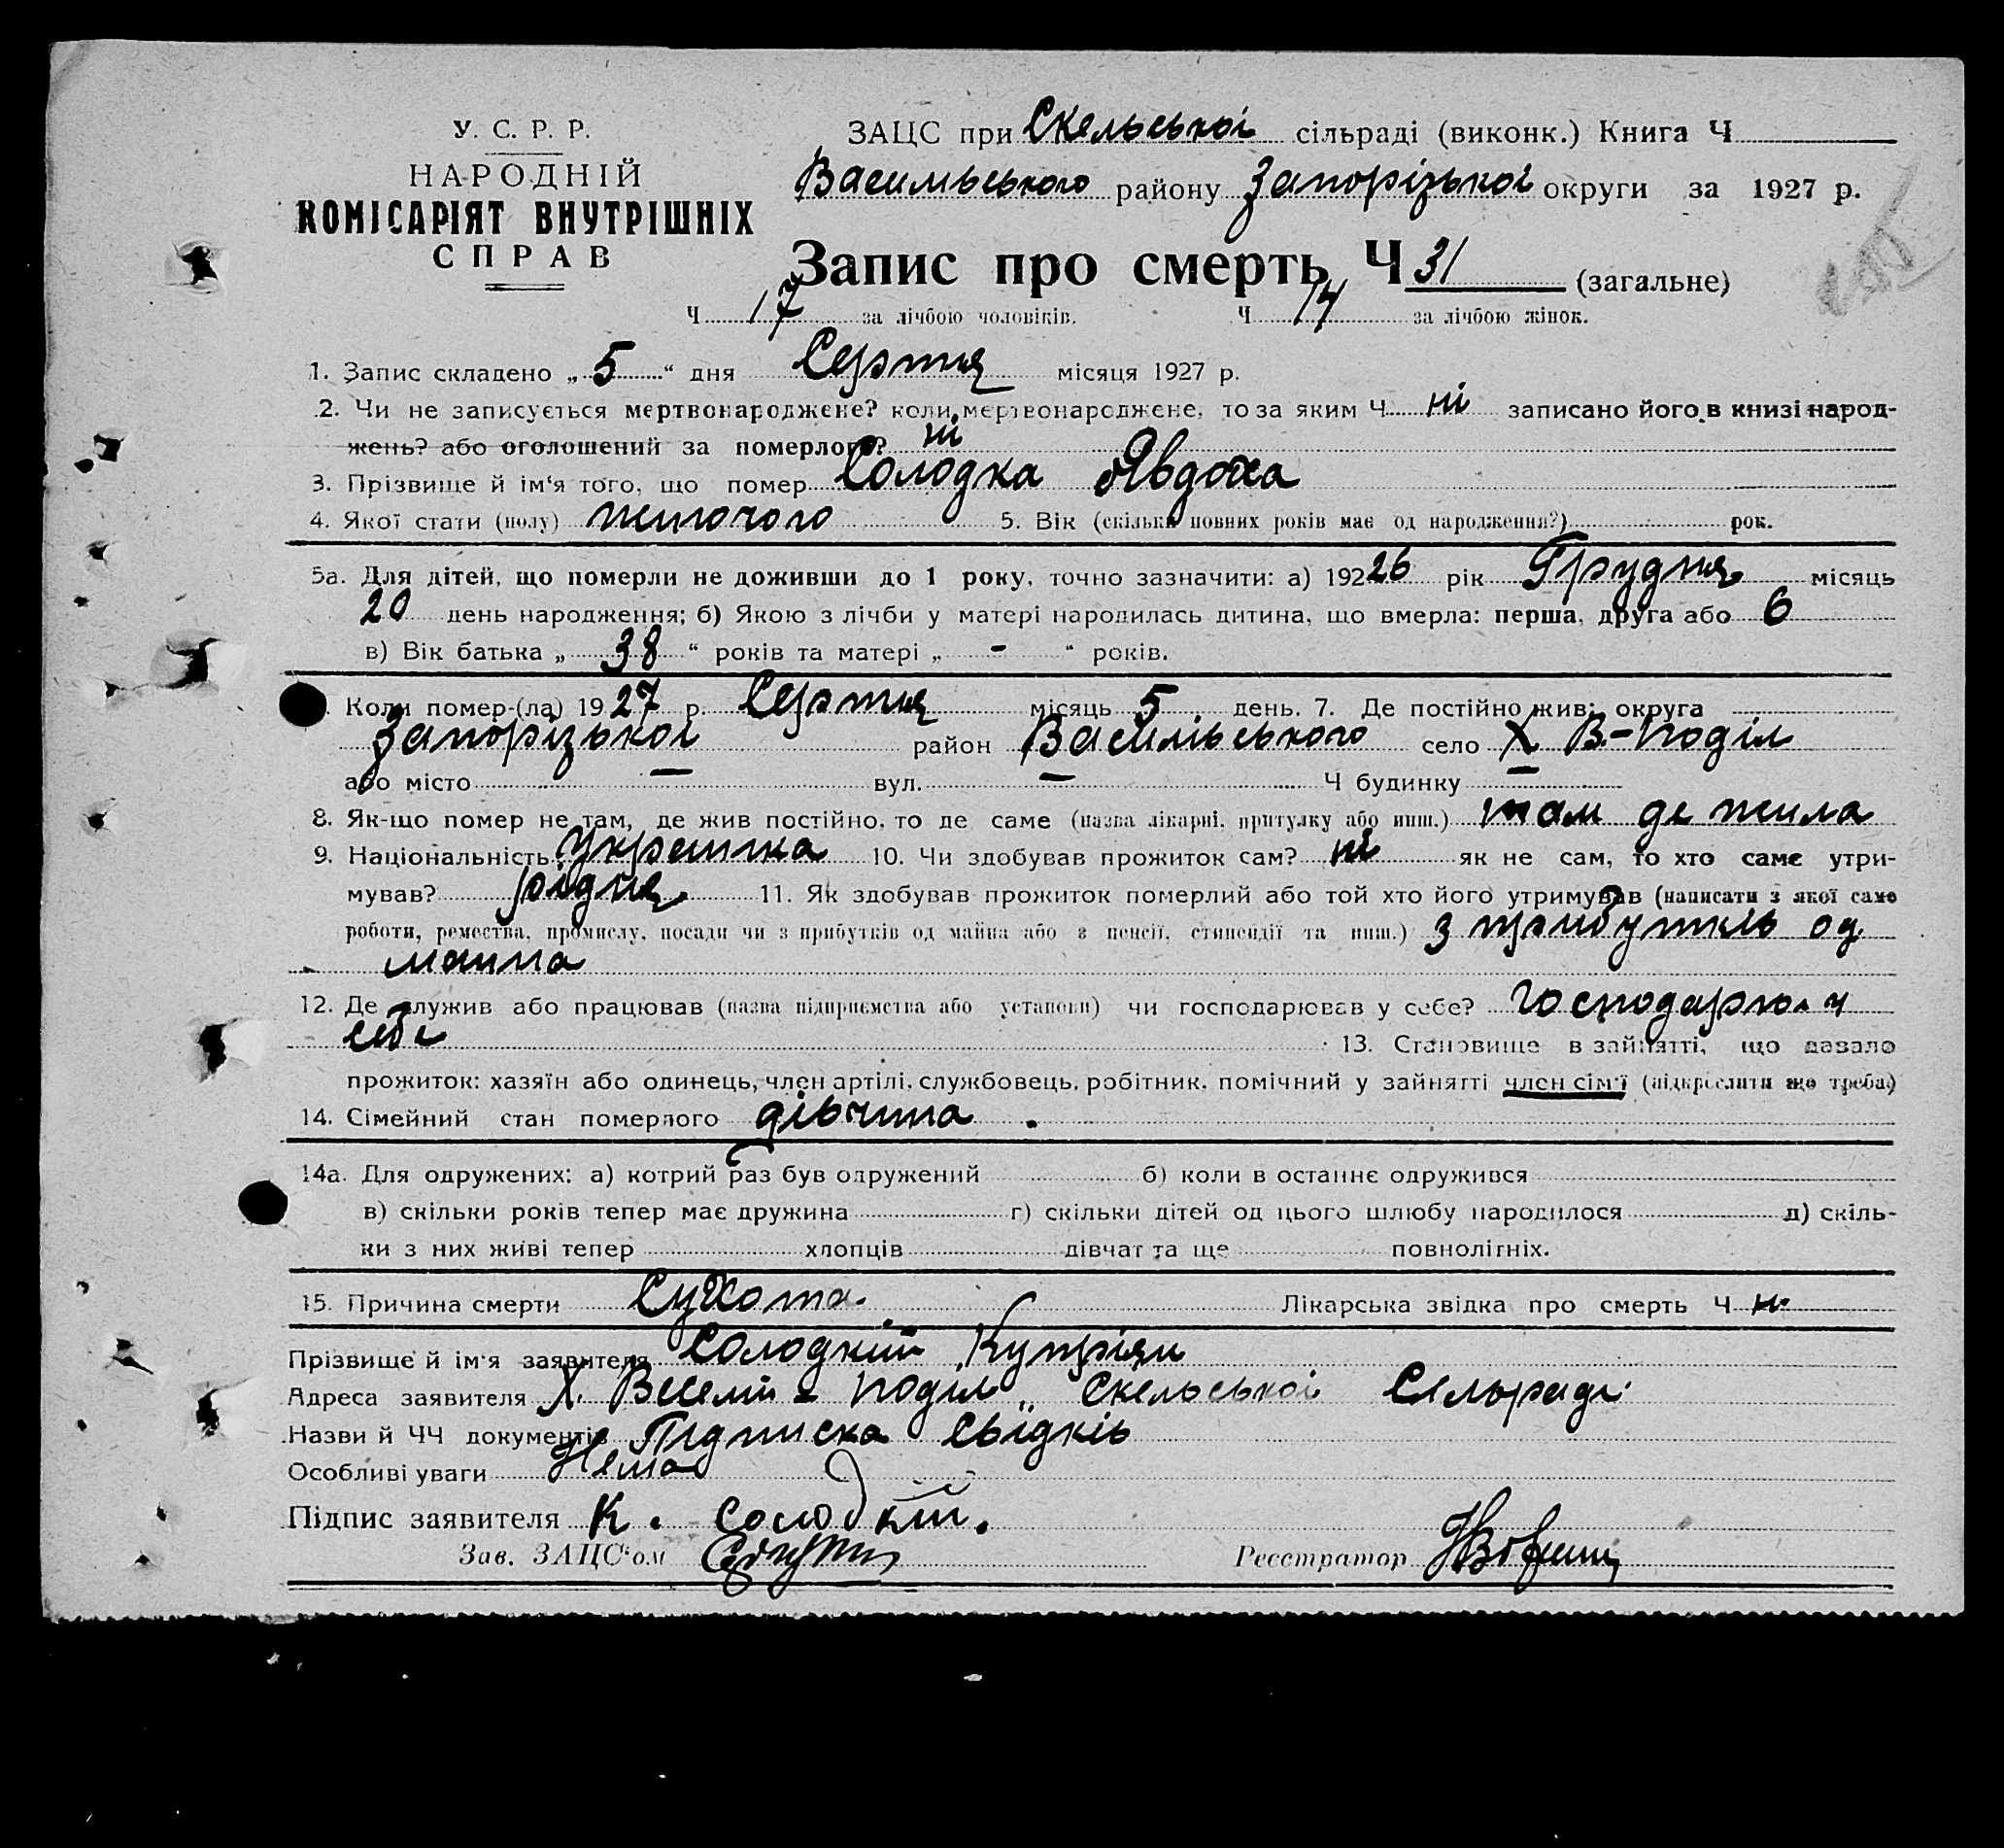 У. С. Р. Р.
НАРОДНІЙ
КОМІСАРІЯТ ВНУТРІШНІХ
СПРАВ
ЗАЦС при Скельської сільраді (виконк.) Книга Ч
Васильського району Запорізької округи за 1927 р.
Запис про смерть Ч 31 (загальне)
Ч 17 за лічбою чоловіків. Ч 14 за лічбою жінок.
1. Запис складено „ 5 “ дня Серпня місяця 1927 р.
2. Чи не записується мертвонароджене? коли мертвонароджене, то за яким Ч ні записано його в книзі народ-
жень? або оголошений за померлого? ні
3. Прізвище й ім'я того, що помер Солодка Явдоха
4. Якої стати (полу) жиночого 5. Вік (скільки повних років має од народження?) рок.
5а. Для дітей, що померли не доживши до 1 року, точно зазначити: а) 192 26 рік Грудня місяць
20 день народження; б) Якою з лічби у матері народилась дитина, що вмерла: перша, друга або 6
в) Вік батька „ 38 “ років та матері „ - “ років.
Коли помер-(ла) 19 27 р. Серпня місяць 5 день. 7. Де постійно жив: округа
Запорізької район Василівського село Х В.-Поділ
або місто — вул. — Ч будинку —
8. Як-що помер не там, де жив постійно, то де саме (назва лікарні, притулку або инш.) там де жила
9. Національність Украинка 10. Чи здобував прожиток сам? ні як не сам, то хто саме утри-
мував? рідня 11. Як здобував прожиток померлий або той хто його утримував (написати з якої саме
роботи, ремества, промислу, посади чи з прибутків од майна або з пенсії, стипендії та инш.) З прибутків од
маина
12. Де служив або працював (назва підприємства або установи) чи господарював у себе? Господарю. у
себе 13. Становище в зайнятті, що давало
прожиток: хазяїн або одинець, член артілі, службовець, робітник, помічний у зайнятті член сім'ї (підкреслити що треба)
14. Сімейний стан померлого дівчина .
14а. Для одружених: а) котрий раз був одружений б) коли в останнє одружився
в) скільки років тепер має дружина г) скільки дітей од цього шлюбу народилося д) скіль-
ки з них живі тепер хлопців дівчат та ще повнолітніх.
15. Причина смерти Сухота. Лікарська звідка про смерть Ч н.
Прізвище й ім'я заявителя Солодкій Купріян
Адреса заявителя Х. Веселий - Поділ „ Скельської Сельради
Назви й ЧЧ документів Підписка Свідків
Особливі уваги Нема
Підпис заявителя К. Солодкій.
Зав. ЗАЦС'ом
Реєстратор